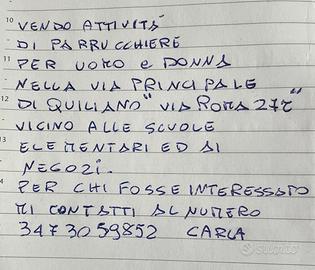 10
VENDO ATTIVITÁ
DI PARRUCCHIERE
11
PER UOMO e DONNA
NELLA VIA PRINCIPALE
12
DI QUILIANO "VIA ROMA 27r"
VICINO ALLE SCUOLE
13
ELEMENTARI ED AI
NEGOZI.
PER CHI FOSSE INTERESSATO
MI CONTATTI AL NUMERO
3473059852 CARLA
subito